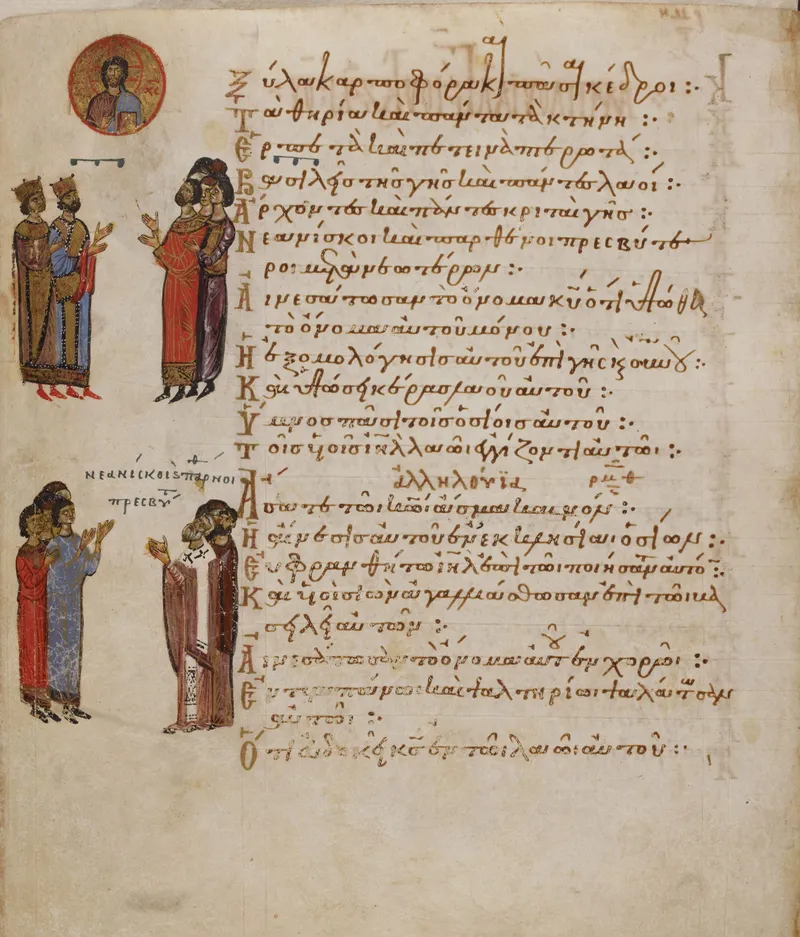 Ξύλα καρποφόρα κ πᾶσαι κέδροι :·
Τὰ θηρία καὶ πάντα τὰ κτήνη :·
Ἑρπετὰ καὶ πετεινὰ πτερωτά :·
Βασιλεῖς τῆς γῆς καὶ πάντες λαοί :·
Ἄρχοντες καὶ πάντες κριταὶ γῆς :·
Νεανίσκοι καὶ παρθένοι πρεσβύτε
ροι μετὰ νεωτέρων :·
Αἰνεσάτωσαν τὸ ὄνομα κυ ὅτι ὑψώθη
τὸ ὄνομα αὐτοῦ μόνου :·
Ἡ ἐξομολόγησις αὐτοῦ ἐπὶ γῆς κ οὐνοῦ :·
Καὶ ὑψώσει κέρας λαοῦ αὐτοῦ :·
Ὕμνος πᾶσι τοῖς ὁσίοις αὐτοῦ :·
Τοῖς υἱοῖς ιηλ λαῶι ἐγγίζοντι αὐτῶι :·
νεανίσκοι παρθένοι
πρεσβυτ
ἀλληλούϊα ρμθ
Ἄσατε τῶι κωι ἆσμα καινόν :·
Ἡ αἴνεσις αὐτοῦ ἐν ἐκκλησίαι ὁσίων :·
Εὐφρανθήτω ιηλ ἐπὶ τῶι ποιήσαντι αὐτόν :·
Καὶ υἱοὶ σιὼν ἀγαλλιάσθωσαν ἐπὶ τῶι βα
σιλεῖ αὐτῶν :·
Αἰνεσάτωσαν τὸ ὄνομα αὐτοῦ ἐν χορῶι :·
Ἐν τυμπάνωι καὶ ψαλτηρίωι ψαλάτωσαν
αὐτῶι :·
Ὅτι εὐδοκεῖ κς ἐν τῶι λαῶι αὐτοῦ :·